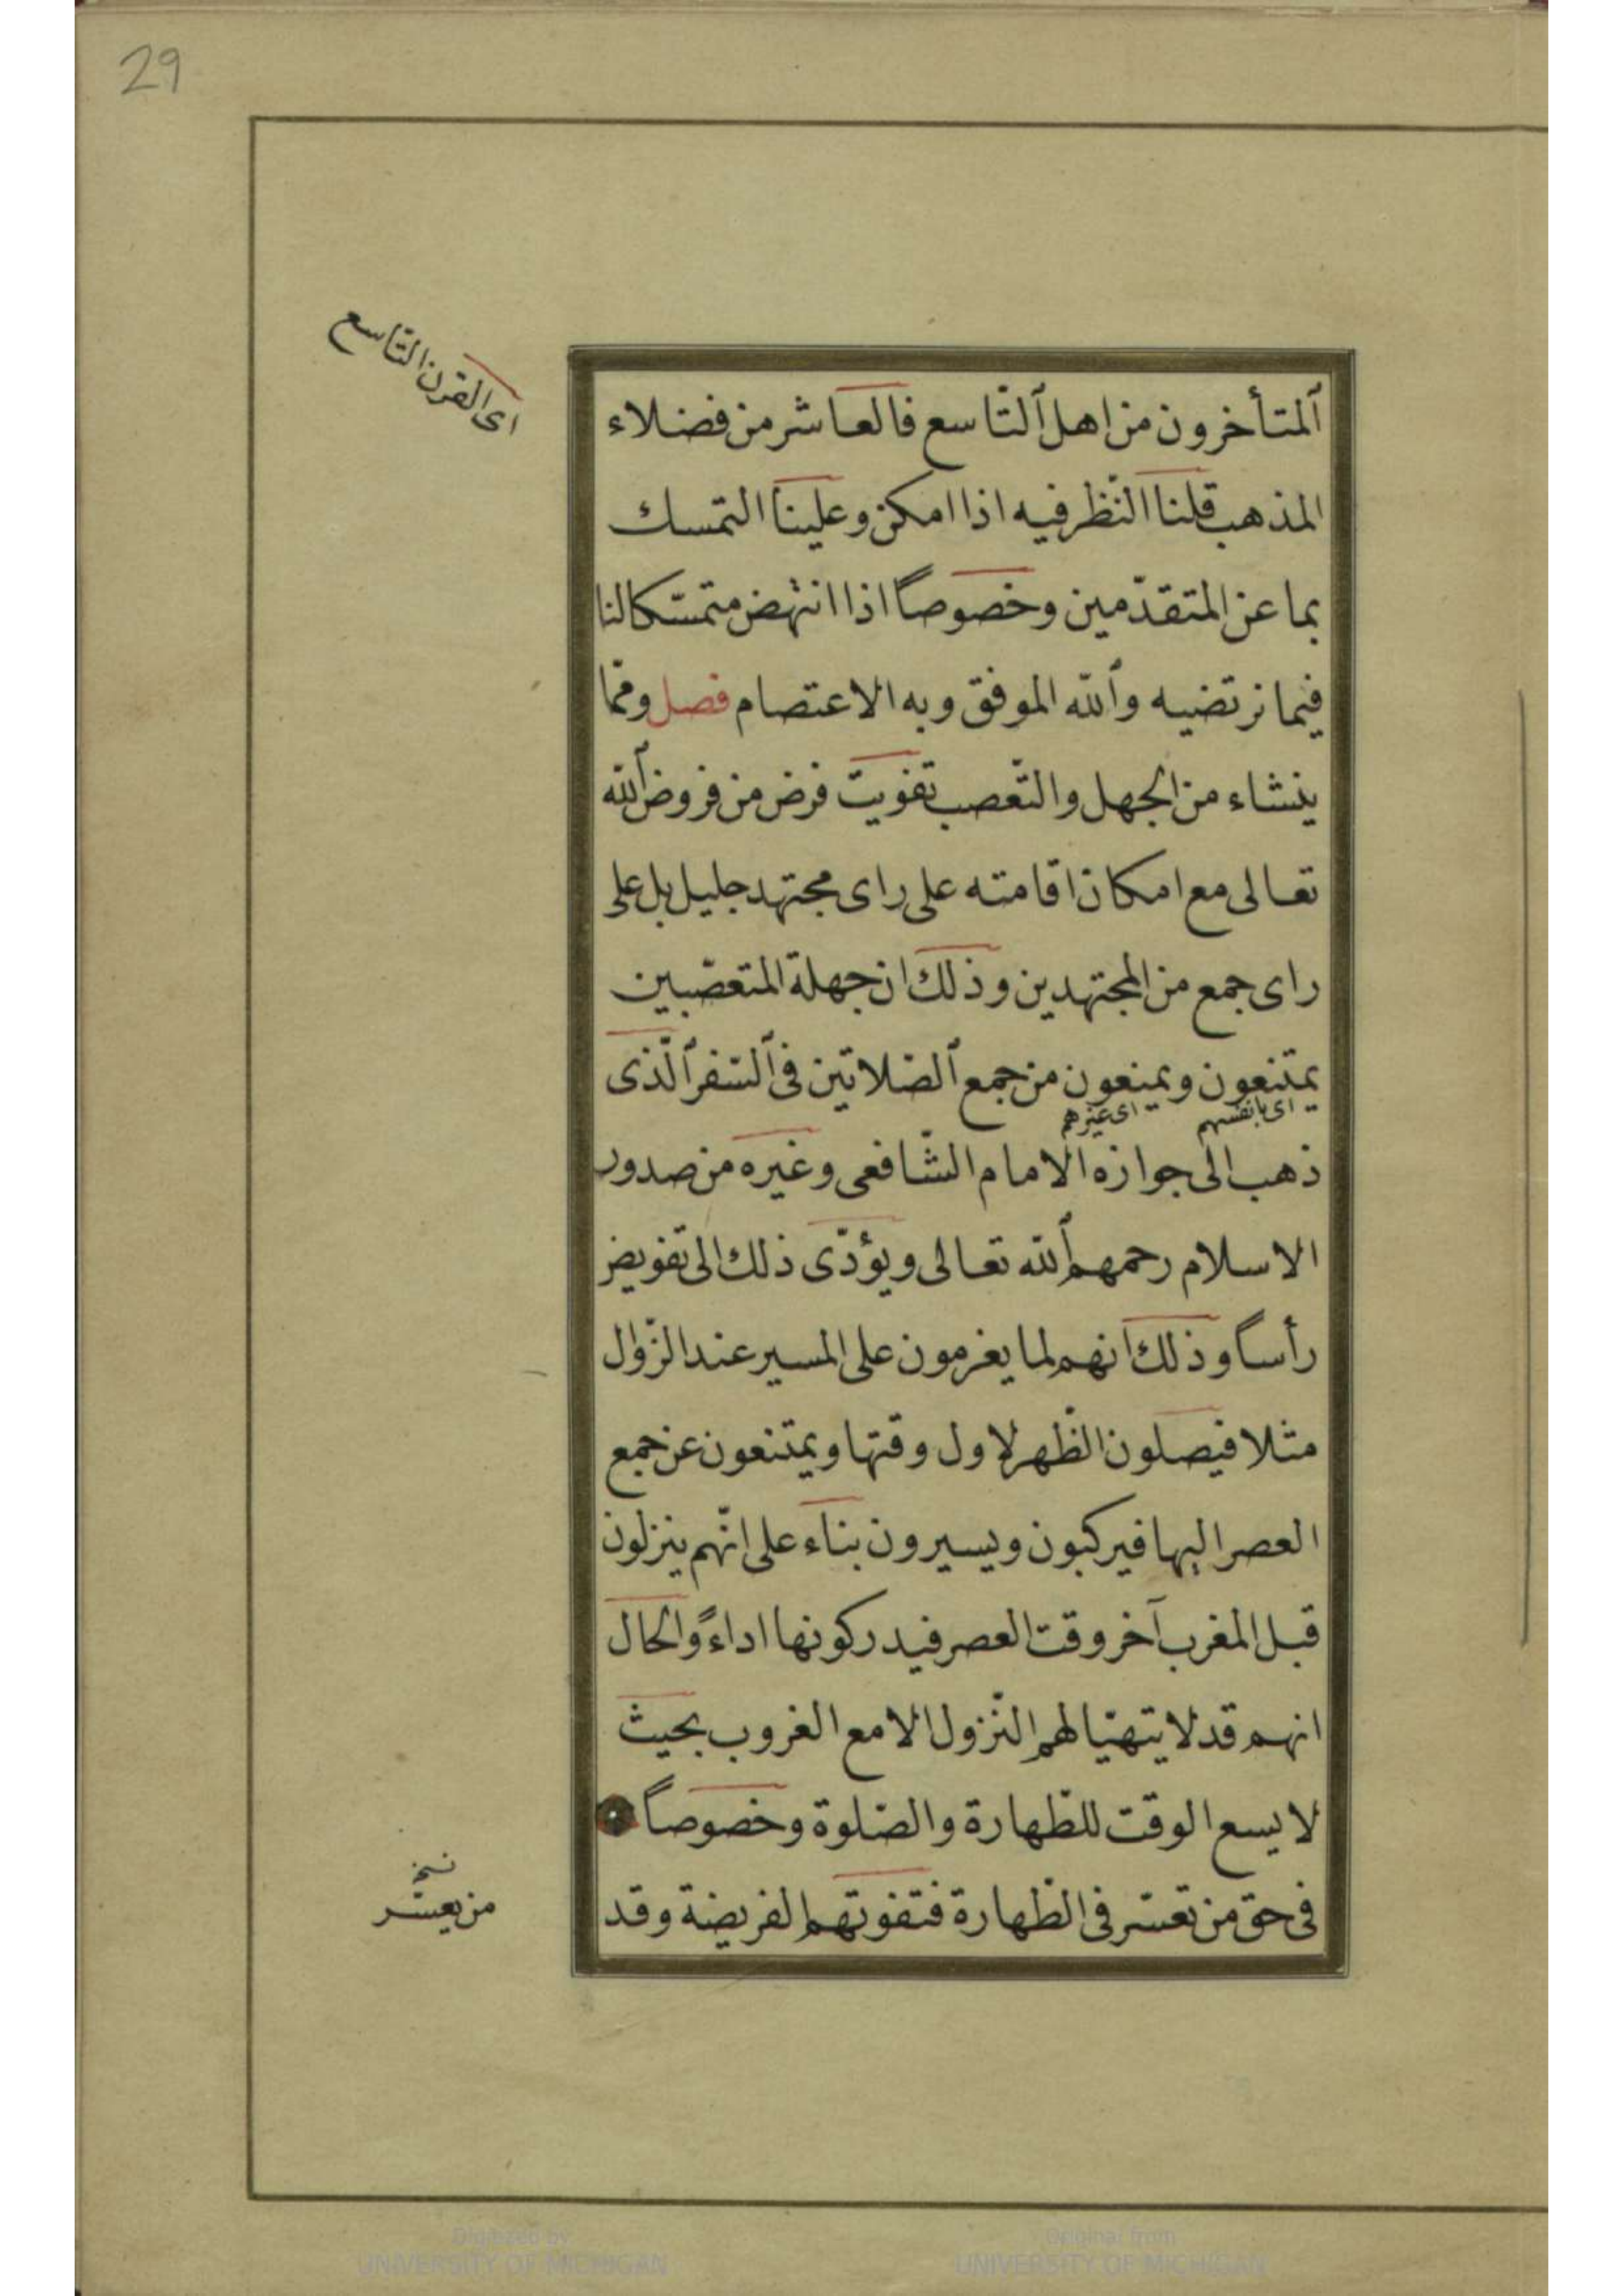 29
اى القرن التاسع
ٱلمتأخرون من اهل ٱلتّاسع فالعاشر من فضلاء
المذهب قلنا النّظر فيه اذا امكن وعلينا التمسك
بما عن المتقدّمين وخصوصاً اذا انتهض متمسّكا لنا
فيما نرتضيه وٱللّه الموفق وبه الاعتصام فصل وممّا
ينشاء من الجهل والتّعصب تفويت فرض من فروض ٱللّه
تعالى مع امكان اقامته على راى مجتهد جليل بل على
راى جمع من المجتهدين وذلك ان جهلة المتعصّبين
يمتنعون ويمنعون من جمع ٱلصّلاتين فى ٱلسّفر ٱلّذى
اى بانفسهم اى غيرهم
ذهب الى جوازه الامام الشّافعى وغيره من صدور
الاسلام رحمهم ٱللّه تعالى ويؤدّى ذلك الى تفويض
رأساً وذلك انهم لما يعزمون على المسير عند الزّوال
مثلا فيصلون الظّهر لاول وقتها ويمتنعون عن جمع
العصر اليها فيركبون ويسيرون بناء على انّهم ينزلون
قبل المغرب آخر وقت العصر فيدركونها اداءً والحال
انهم قد لا يتهيّا لهم النّزول الا مع الغروب بحيث
لا يسع الوقت للطّهارة والصّلوة وخصوصاً
فى حق من تعسّر فى الطّهارة فتفوتهم الفريضة وقد
نسخ
من يعسّر
Digitized by
UNIVERSITY OF MICHIGAN
Original from
UNIVERSITY OF MICHIGAN